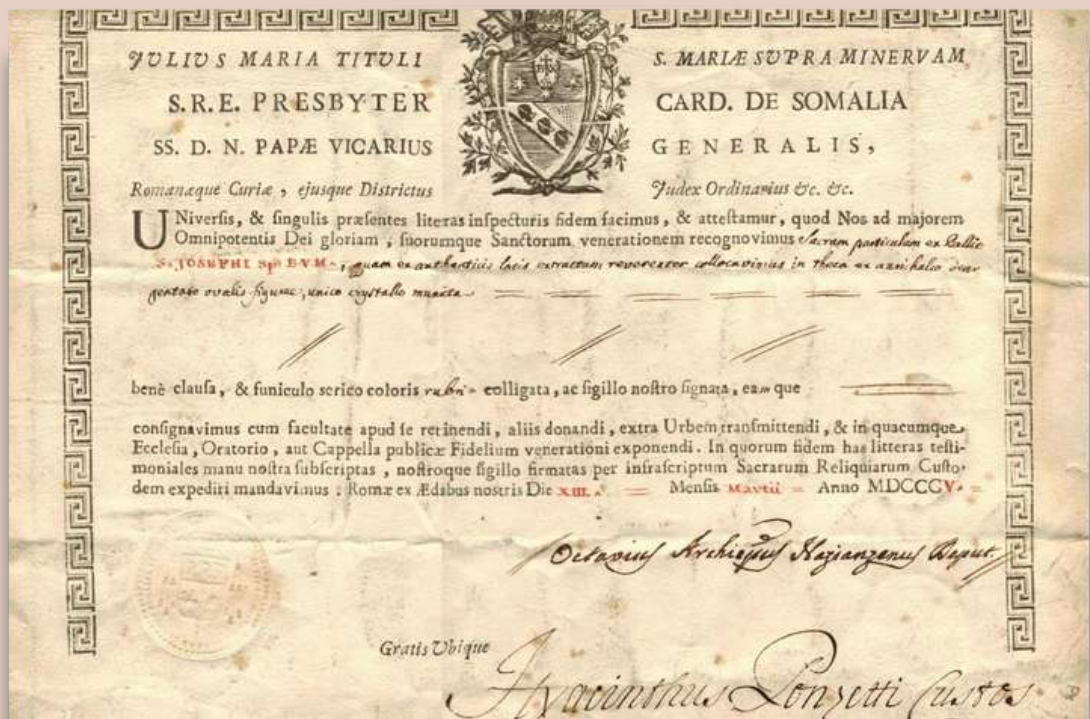 JULIUS MARIA TITULI S. MARIÆ SUPRA MINERVAM
S.R.E. PRESBYTER CARD. DE SOMALIA
SS. D. N. PAPÆ VICARIUS GENERALIS,
Romanæque Curiæ, ejusque Districtus Judex Ordinarius &c. &c.
UNiversis, & singulis præsentes literas inspecturis fidem facimus, & attestamur, quod Nos ad majorem
Omnipotentis Dei gloriam, suorumque Sanctorum venerationem recognovimus Sacram particulam ex Pallio
S. JOSEPHI Sp. BVM., quam ex authenticis locis extractam reverenter collocavimus in theca ex aurichalco dear
gentato ovalis figurae, unico crystallo munita
benè clausa, & funiculo serico coloris rubri colligata, ac sigillo nostro signata, eam que
consignavimus cum facultate apud se retinendi, aliis donandi, extra Urbem transmittendi, & in quacumque
Ecclesia, Oratorio, aut Cappella publicæ Fidelium venerationi exponendi. In quorum fidem has litteras testi-
moniales manu nostra subscriptas, nostroque sigillo firmatas per infrascriptum Sacrarum Reliquiarum Custo-
dem expediri mandavimus. Romæ ex Ædabus nostris Die XIII. Mensis Martii Anno MDCCCV.
Octavius Archiepus Nazianzenus Deput.
Gratis Ubique
Hyacinthus Ponzetti Custos